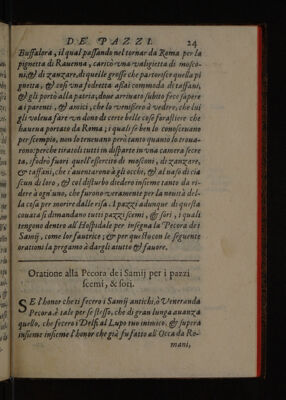 DE PAZZI. 24
Buffalora, il qual passando nel tornar da Roma per la
pignetta di Rauenna, caricò vna valigietta di mosco-
ni, & di zanzare, di quelle grosse che partorisce quella pi
gnetta, & così vna fodretta assai commoda di taffani,
& gli portò alla patria; doue arriuato, subito fece sapere
a i parenti, & amici, che lo venissero à vedere, che lui
gli voleua fare vn dono di certe belle cose forastiere che
haueua portato da Roma; i quali se ben lo conosceuano
per scempio, non lo teneuano però tanto quanto lo troua-
rono perche tiratoli tutti in disparte in vna camera secre
ta, sfodrò fuori quell'essercito di mosconi, di zanzare,
& taffani, che s'auentarono à gli occhi, & al naso di cia
scun di loro, & col disturbo diedero insieme tanto da ri-
dere à ogn'uno, che furono veramente per la nouità del-
la cosa per morire dalle risa. I pazzi adunque di questa
couata si dimandano tutti pazzi scemi, & sori, i quali
tengono dentro all'Hospidale per insegna la Pecora dei
Samij, come lor fautrice; & per questo con le seguente
orationi la pregamo à dargli aiutto & fauore.
Oratione alla Pecora dei Samij per i pazzi
scemi, & sori.
SE l'honor che ti fecero i Samij antichi, ò Veneranda
Pecora, è tale per se stesso, che di gran lunga auanza
quello, che fecero i Delfi al Lupo tuo inimico, & supera
insieme insieme l'honor che già fu fatto all'Occa da Ro-
mani,